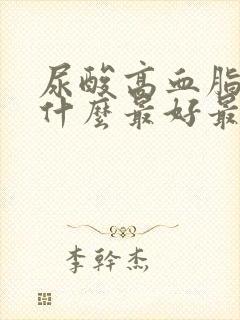 尿酸高血脂
什麼最好最
李幹杰